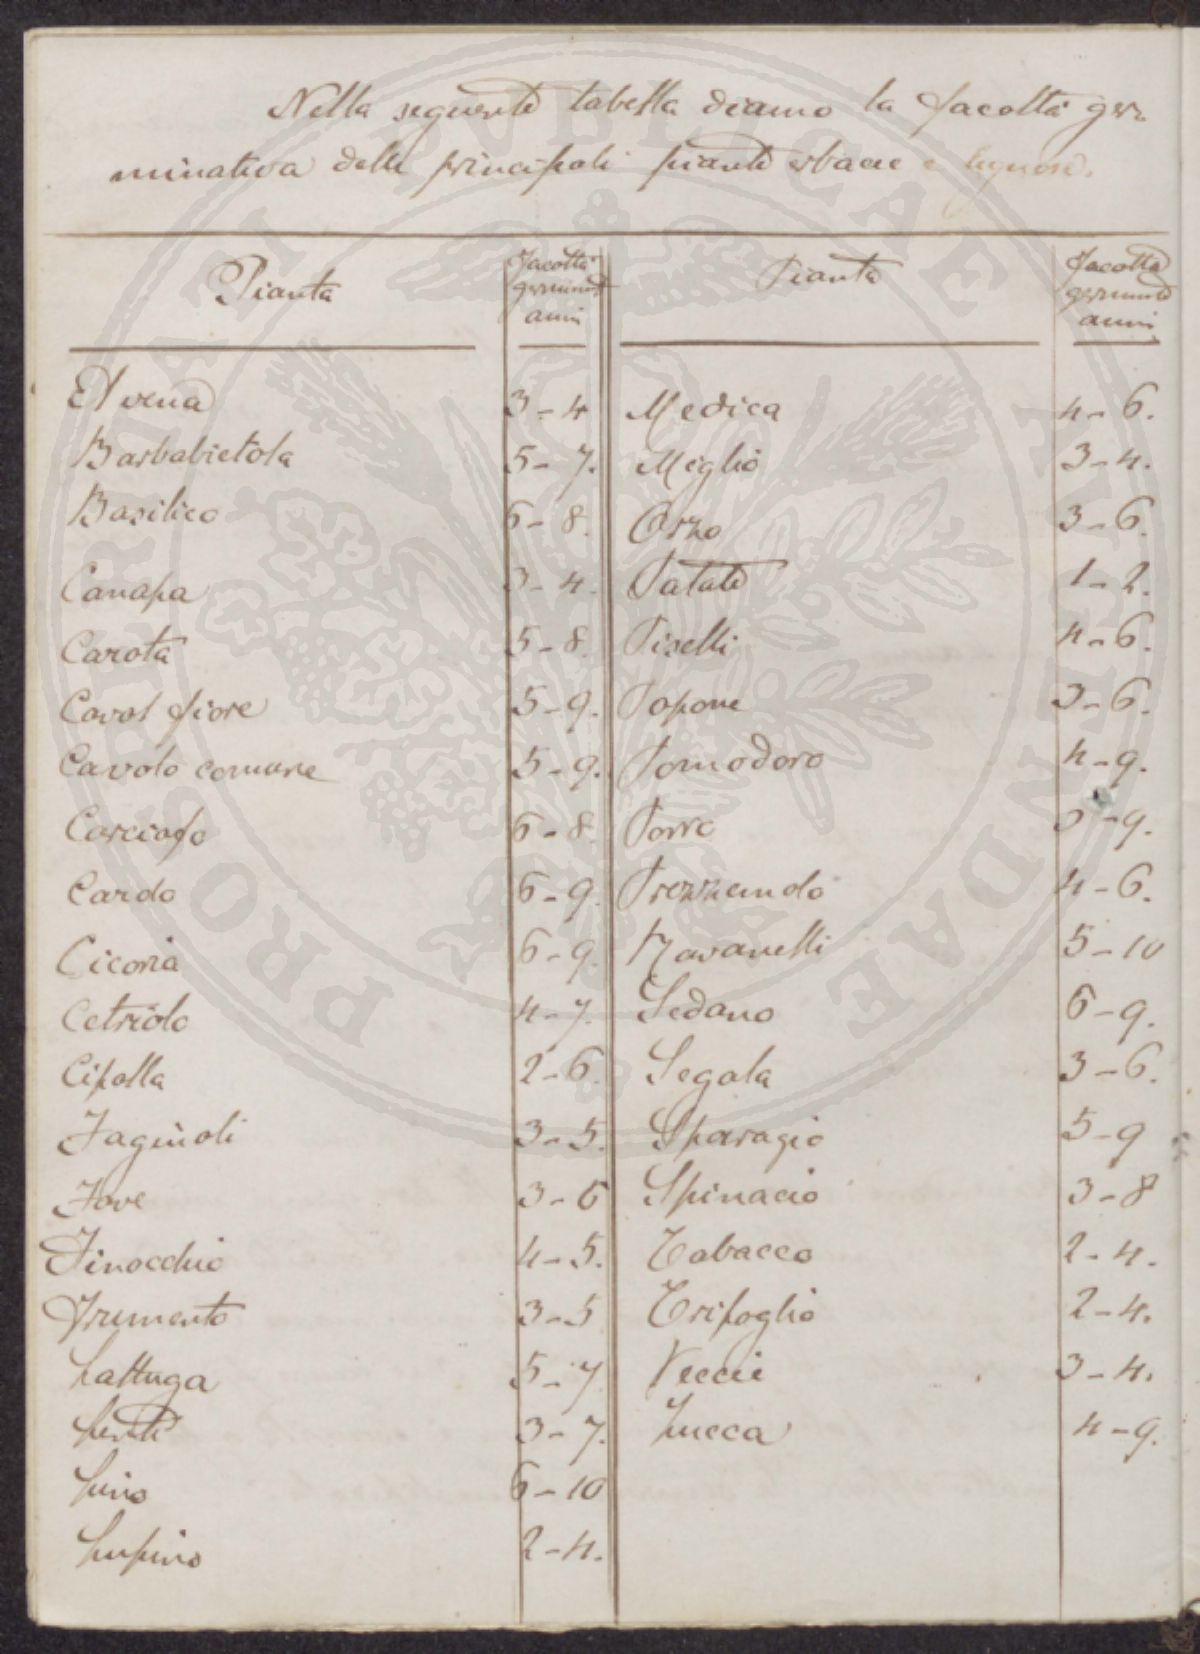 Nella seguente tabella diamo la facoltà ger
minativa delle principali piante erbacee e legnose.
Pianta
Facoltà
germinat
anni
Pianta
Facoltà
germinat
anni
Avena 3-4 Medica 4-6.
Barbabietola 5-7. Meglio 3-4.
Basilico 6-8. Orzo 3-6.
Canapa 3-4. Patate 1-2.
Carota 5-8. Piselli 4-6.
Cavol fiore 5-9. Popone 3-6.
Cavolo comune 5-9. Pomodoro 4-9.
Carciofo 6-8. Porro 3-9.
Cardo 6-9. Prezzemolo 4-6.
Cicoria 6-9. Ravanelli 5-10
Cetriolo 4-7. Sedano 6-9.
Cipolla 2-6. Segala 3-6.
Fagiuoli 3-5. Sparagio 5-9
Fave 3-6 Spinacio 3-8
Finocchio 4-5. Tabacco 2-4.
Frumento 3-5 Trifoglio 2-4.
Lattuga 5-7 Veccie 3-4.
Lenti 3-7. Zucca 4-9.
Lino 6-10
Lupino 2-4.
PROSPERITATI PVBLICAE AVGENDAE